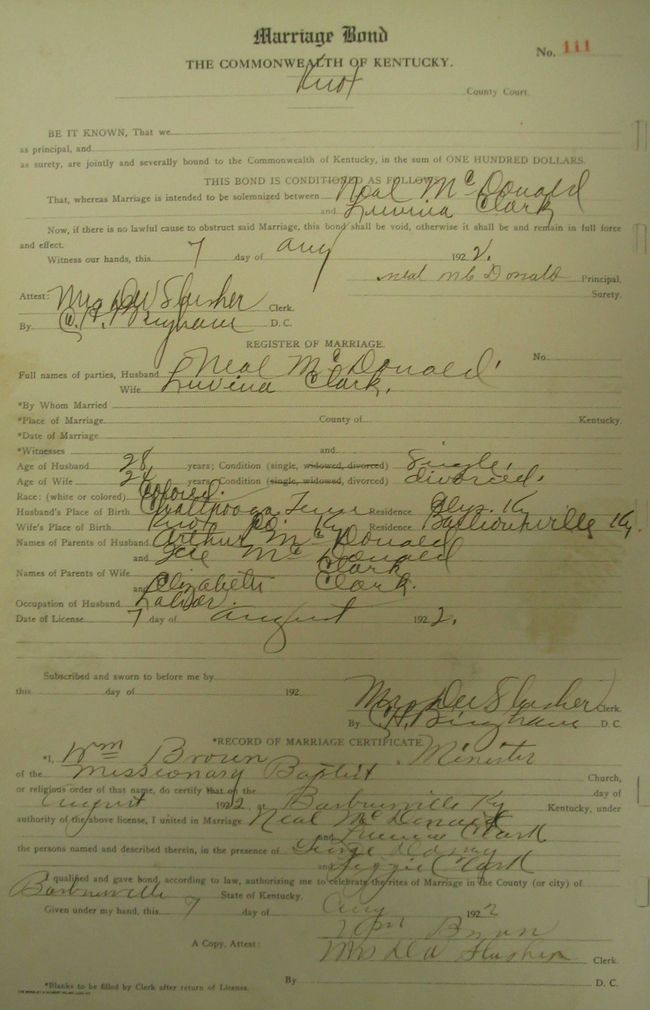 Marriage Bond
No. 111
THE COMMONWEALTH OF KENTUCKY.
Knox County Court.
BE IT KNOWN, That we
as principal, and
as surety, are jointly and severally bound to the Commonwealth of Kentucky, in the sum of ONE HUNDRED DOLLARS.
THIS BOND IS CONDITIONED AS FOLLOWS
That, whereas Marriage is intended to be solemnized between Neal McDonald
and Luvina Clark
Now, if there is no lawful cause to obstruct said Marriage, this bond shall be void, otherwise it shall be and remain in full force
and effect.
Witness our hands, this 7 day of Aug 1922.
Neal McDonald Principal.
Surety.
Attest: Slusher Clerk.
By Bingham D. C.
REGISTER OF MARRIAGE.
No.
Full names of parties, Husband Neal McDonald.
Wife Luvina Clark.
*By Whom Married
*Place of Marriage County of Kentucky.
*Date of Marriage
*Witnesses and
Age of Husband 28 years; Condition (single, widowed, divorced) Single.
Age of Wife 24 years; Condition (single, widowed, divorced) divorced.
Race: (white or colored) Colored.
Husband's Place of Birth Tenn Residence Ky
Wife's Place of Birth Knox Co. Ky Residence Ky.
Names of Parents of Husband Arthur McDonald
and McDonald
Names of Parents of Wife Clark
and Elizabeth Clark.
Occupation of Husband Labor.
Date of License 7 day of August 1922.
Subscribed and sworn to before me by
this day of 192
Slusher Clerk.
By C. H. Bingham D. C.
*RECORD OF MARRIAGE CERTIFICATE
*I, Wm Brown Minister
of the Missionary Baptist Church,
or religious order of that name, do certify that on the day of
August 1922 at Barbourville Ky Kentucky, under
authority of the above license, I united in Marriage Neal McDonald
and Luvina Clark
the persons named and described therein, in the presence of
and Clark
I qualified and gave bond, according to law, authorizing me to celebrate the rites of Marriage in the County (or city) of
Barbourville State of Kentucky.
Given under my hand, this 7 day of Aug 1922
Wm Brown
A Copy, Attest: Slusher Clerk.
By D. C.
*Blanks to be filled by Clerk after return of License.